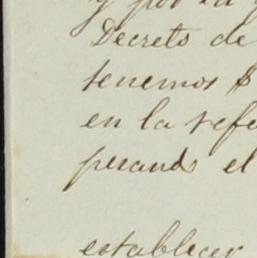 y por la
Decreto de
tenemos $
en la refe
perando el
establecer